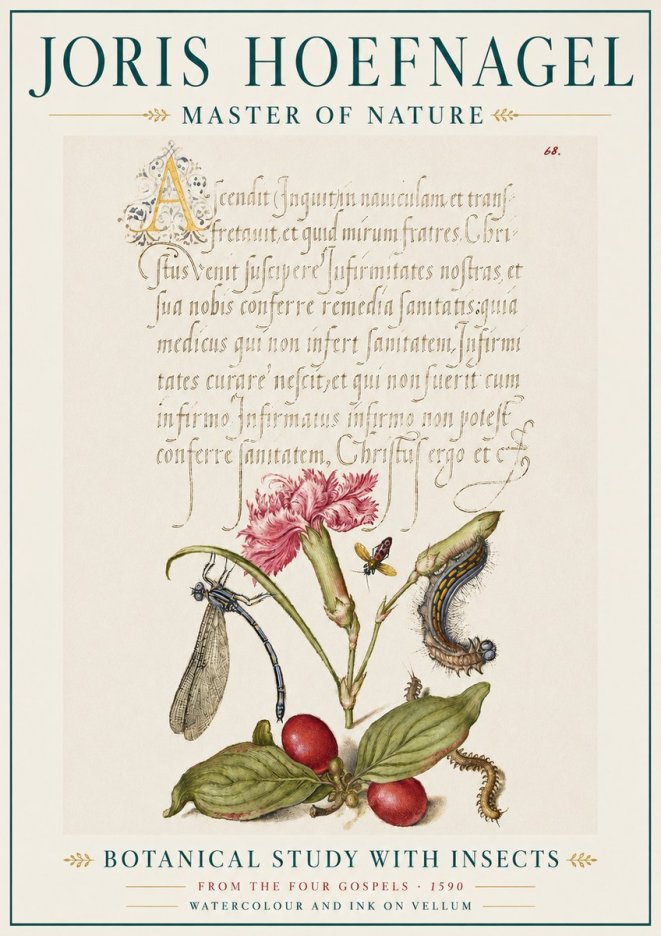 JORIS HOEFNAGEL
MASTER OF NATURE
68.
Ascendit Inquit, in nauiculam, et transf-
fretauit, et quid mirum fratres. Chri-
stus venit suscipere Infirmitates nostras, et
sua nobis conferre remedia sanitatis: quia
medicus qui non infert sanitatem, Infirmi
tates curare nescit, et qui non fuerit cum
infirmo Infirmatus infirmo non potest
conferre sanitatem, Christus ergo et c
BOTANICAL STUDY WITH INSECTS
FROM THE FOUR GOSPELS · 1590
WATERCOLOUR AND INK ON VELLUM